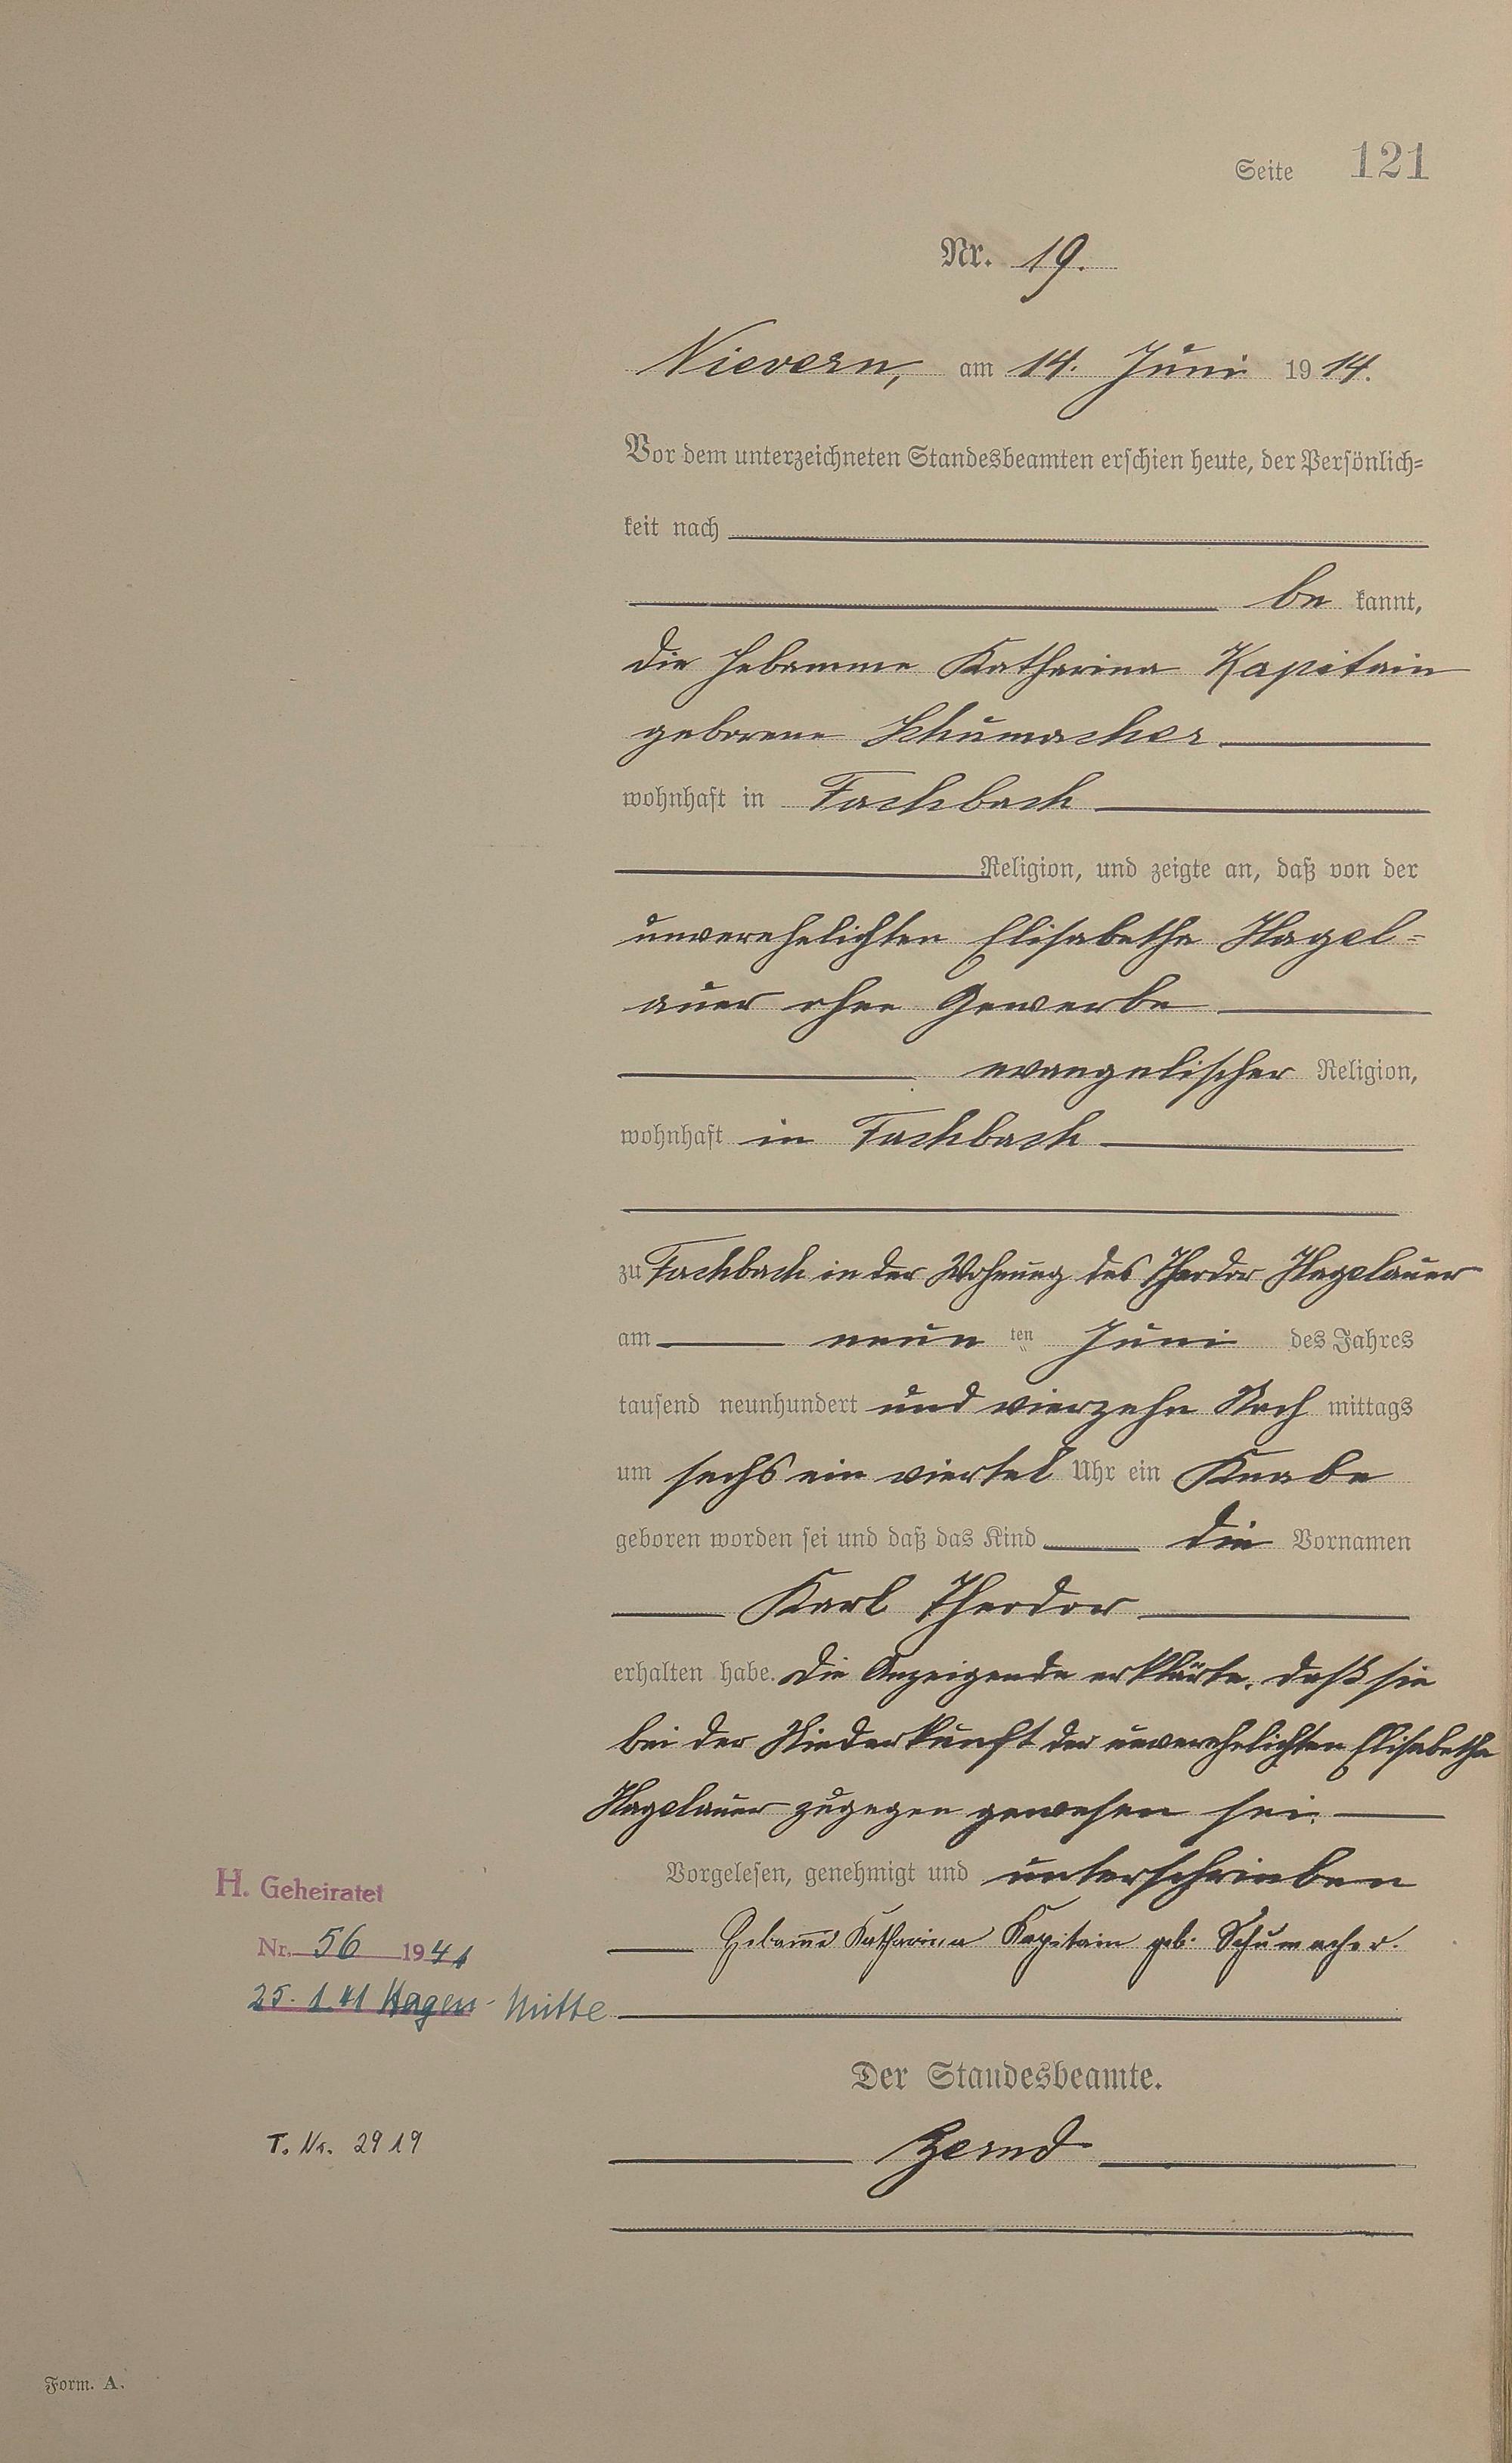 Seite 121
Nr. 19.
Nievern, am 14. Juni 1914.
Vor dem unterzeichneten Standesbeamten erschien heute, der Persönlich=
keit nach
be kannt,
die Hebamme Katharina Kapitain
geborene Schumacher
wohnhaft in Fachbach
Religion, und zeigte an, daß von der
unverehelichten Elisabethe Nagel=
auer ohne Gewerbe
evangelischer Religion,
wohnhaft in Fachbach
zu Fachbach in der Wohnung des Theodor Nagelauer
am neun ten Juni des Jahres
tausend neunhundert und vierzehn Nach mittags
um sechs ein viertel Uhr ein Knabe
geboren worden sei und daß das Kind die Vornamen
Karl Theodor
erhalten habe. Die Anzeigende erklärte, daß sie
bei der Niederkunft der unverehelichten Elisabethe
Nagelauer zugegen gewesen sei.
Vorgelesen, genehmigt und unterschrieben
Hebamme Katharina Kapitain geb. Schumacher.
H. Geheiratet
Nr. 56 1941
25. 1. 41 Hagen-Mitte
Der Standesbeamte.
T. Nr. 2919
Form. A.